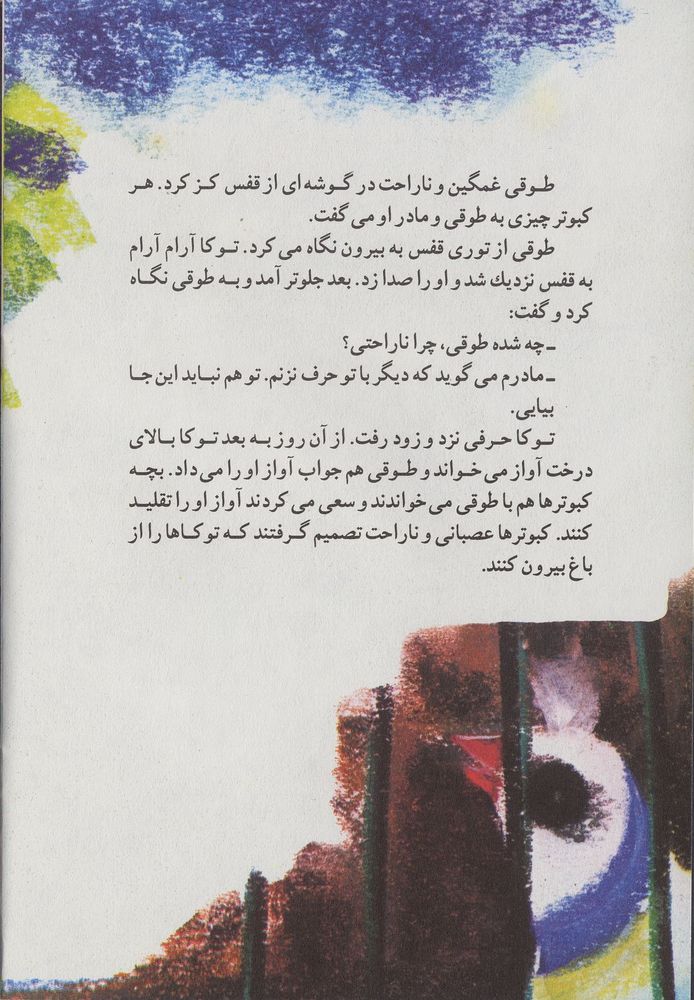 طوقی غمگین و ناراحت در گوشه ای از قفس کز کرد. هر
کبوتر چیزی به طوقی و مادر او می گفت.
طوقی از توری قفس به بیرون نگاه می کرد. توکا آرام آرام
به قفس نزدیك شد و او را صدا زد. بعد جلوتر آمد و به طوقی نگاه
کرد و گفت:
ـ چه شده طوقی، چرا ناراحتی؟
ـ مادرم می گوید که دیگر با تو حرف نزنم. تو هم نباید این جا
بیایی.
توکا حرفی نزد و زود رفت. از آن روز به بعد توکا بالای
درخت آواز می خواند و طوقی هم جواب آواز او را می داد. بچه
کبوترها هم با طوقی می خواندند و سعی می کردند آواز او را تقلید
کنند. کبوترها عصبانی و ناراحت تصمیم گرفتند که توکاها را از
باغ بیرون کنند.